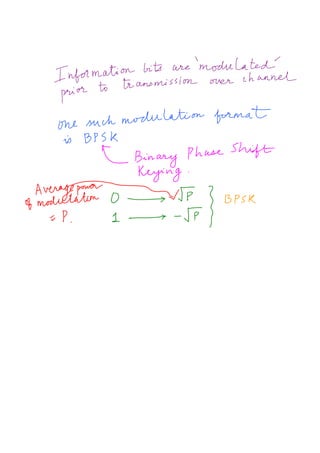 Information bits are 'modulated'
prior to transmission over channel
one such modulation format
is BPSK
Binary Phase Shift
Keying.
Average power
of modulation
= P.
0 → √P
1 → -√P
BPSK